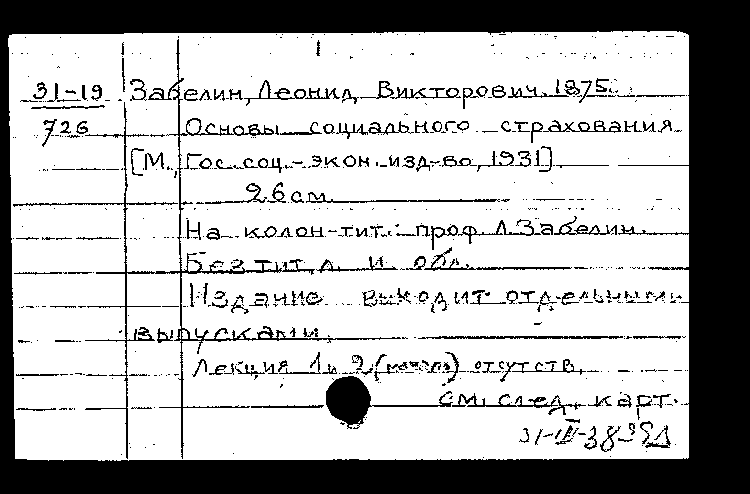 31-19 Забелин, Леонид Викторович. 1875.
726 Основы социального страхования
[М., Гос. соц.-экон. изд-во, 1931].
26 см.
На колон-тит.: проф. Л. Забелин.
Без тит. л. и обл.
Издание выходит отдельными
выпусками.
Лекция 1 и 2 (начало) отсутств.
См. след. карт.
31-III-38